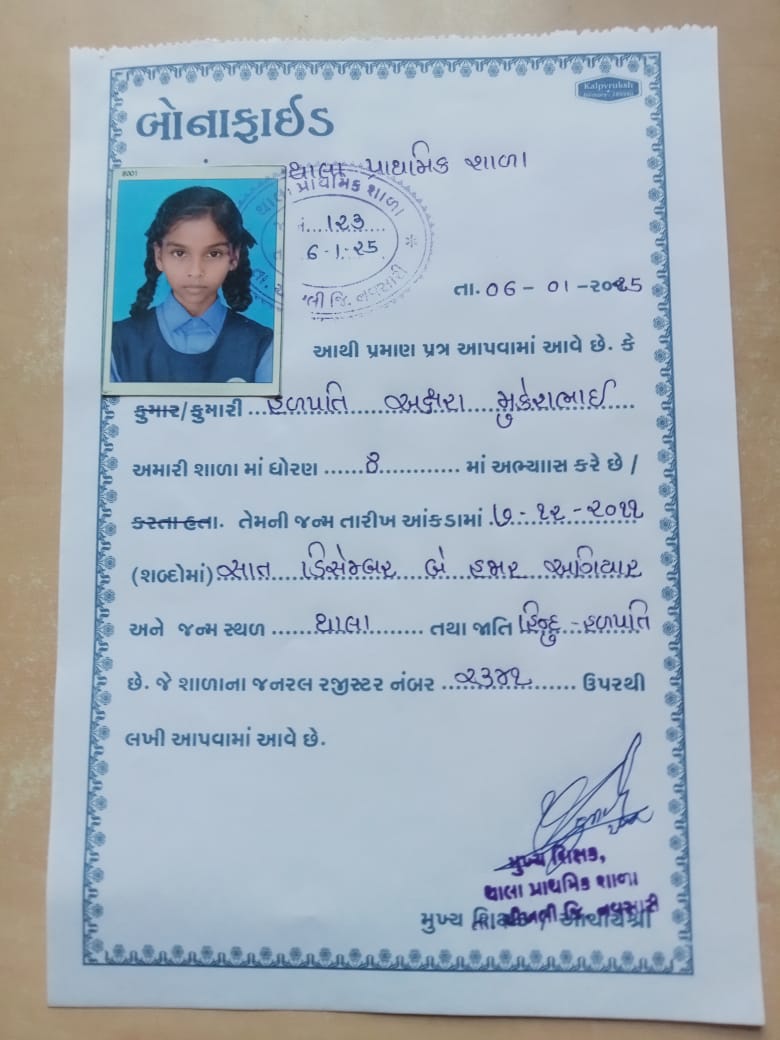 Kalpvruksh
બોનાફાઈડ
થાલા પ્રાથમિક શાળા
8001
થાલા પ્રાથમિક શાળા
નં....૧૨૩
6-1-25
તા.
લી જિ. નવસારી
તા. 06 - 01 -૨૦૨5
આથી પ્રમાણ પત્ર આપવામાં આવે છે. કે
કુમાર/કુમારી હળપતિ અક્ષરા મુકેશભાઈ
અમારી શાળા માં ધોરણ ......8............ માં અભ્યાસ કરે છે /
કરતા હતા. તેમની જન્મ તારીખ આંકડામાં ૭ - ૧૨ - ૨૦૧૧
(શબ્દોમાં) સાત ડિસેમ્બર બે હજાર અગિયાર
અને જન્મ સ્થળ ...... થાલા ......... તથા જાતિ હિન્દુ - હળપતિ
છે. જે શાળાના જનરલ રજીસ્ટર નંબર ..૨૩૪૧.......... ઉપરથી
લખી આપવામાં આવે છે.
મુખ્ય શિક્ષક,
થાલા પ્રાથમિક શાળા
તા. ચીખલી જિ. નવસારી
મુખ્ય શિક્ષક / આચાર્યશ્રી